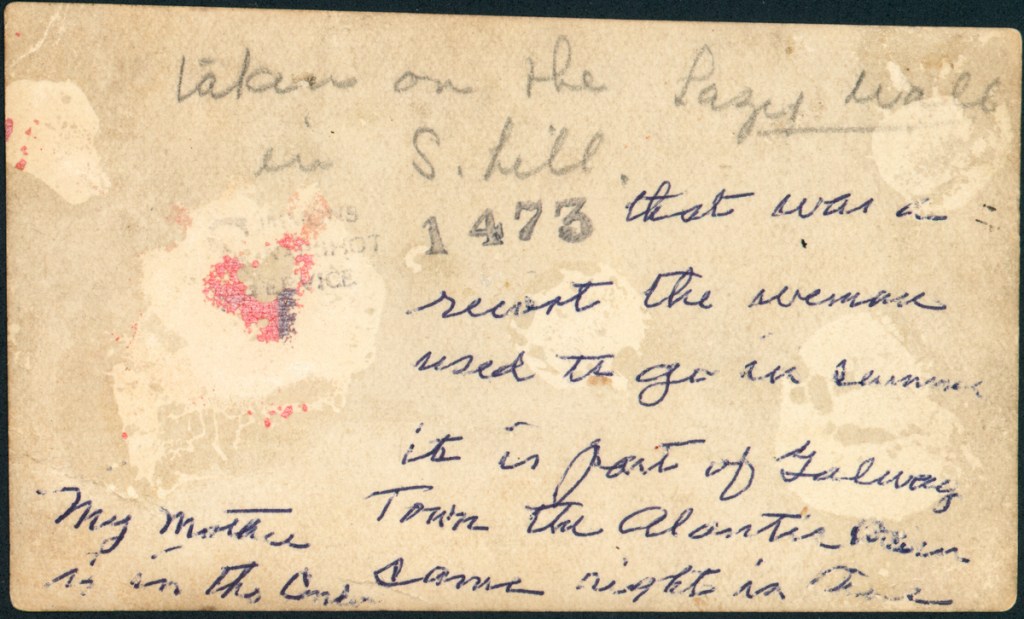 taken on the Lazy Wall
in S. hill.
1473
that was a
resort the weman
used to go in summe
it is part of Galway
Town the Alantic
came right in
My Mother
is in the